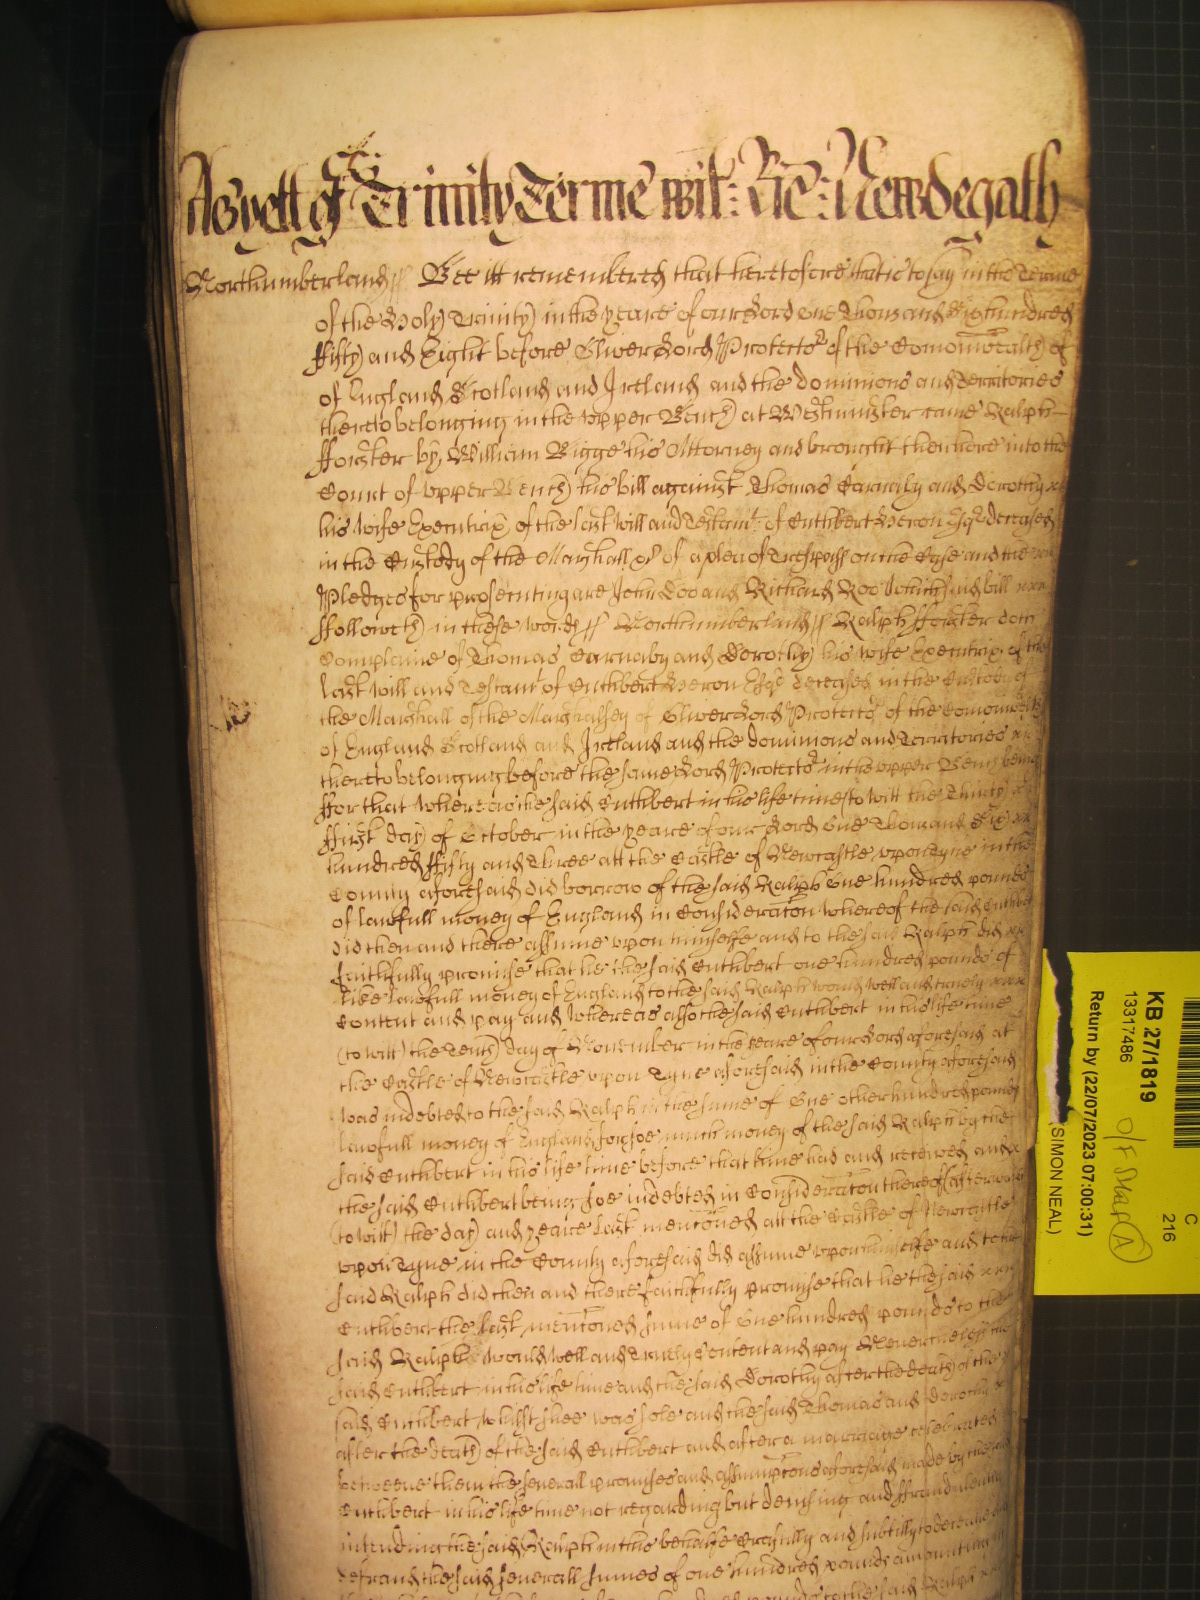 As yett of Trinity Terme wit: Ric: Newdegath
Northumberland// Bee itt remembered that heretofore that is to say in the Terme
of the Holy Trinity in the yeare of our Lord One Thousand Six hundred
ffifty and Eight before Oliver Lord Protector of the Comonwealth of
of England Scotland and Ireland and the dominions and Territories
thereto belonging in the Upper Bench at Westminster came Ralph
fforster by William Bigge his Attorney and brought then here into the
Court of Upper Bench his bill against Thomas Carnaby and Dorothy
his wife Executrix of the last will and Testamt. of Cuthbert Heron Esqr deceased
in the Custody of the Marshall &c of a plea of Trespass on the Case and the
Pledges for prosecuting are John Doo and Richard Roo Which said bill
ffolloweth in these words// Northumberland// Ralph fforster doth
Complaine of Thomas Carnaby and Dorothy his wife Executrix of the
last will and Testamt of Cuthbert Heron Esqr deceased in the Custody of
the Marshall of the Marshalsey of Oliver Lord Protector of the Comonwealth
of England Scotland and Ireland and the dominions and Territories
thereto belonging before the same Lord Protector in the upper Bench being
ffor that Whereas the said Cuthbert in his life time to witt the Thirty
ffirst day of October in the yeare of our Lord One Thousand Six
hundred ffifty and Three att the Castle of Newcastle upon Tyne in the
County aforesaid did borrow of the said Ralph One hundred pounds
of lawfull money of England in Consideracon Whereof the said Cuthbert
did then and there assume upon himselfe and to the said Ralph did
faithfully promise that he the said Cuthbert one hundred pounds of
like lawfull money of England to the said Ralph would well and truely
Content and pay and Whereas also the said Cuthbert in his life time
(to witt) the Tenth day of November in the yeare of our Lord aforesaid at
the Castle of Newcastle upon Tyne aforesaid in the County aforesaid
was indebted to the said Ralph in the sume of One other hundred pounds
lawfull money of England for soe much money of the said Ralph by the
said Cuthbert in his life time before that time had and received and
the said Cuthbert being soe indebted in Consideracon thereof afterwards
(to witt) the day and yeare last mencioned att the Castle of Newcastle
upon Tyne in the County aforesaid did assume upon himselfe and to the
said Ralph did then and there faithfully promise that he the said
Cuthbert the last mencioned sume of One hundred pounds to the
said Ralph would well and truely Content and pay Neverthelesse the
said Cuthbert in his life time and the said Dorothy after the death of the
said Cuthbert Whilst shee was sole and the said Thomas and Dorothy
after the death of the said Cuthbert and after a marriage celebrated
betweene them the severall promises and assumptcons aforesaid made by the said
Cuthbert in his life time not regarding but devising and ffraudulently
intending the said Ralph in this behalfe Craftily and subtilly to deceive and
defraud the said severall sumes of one hundred pounds amounting
KB 27/1819
13317486
Return by (22/07/2023 07:00:31)
SIMON NEAL)
C
216